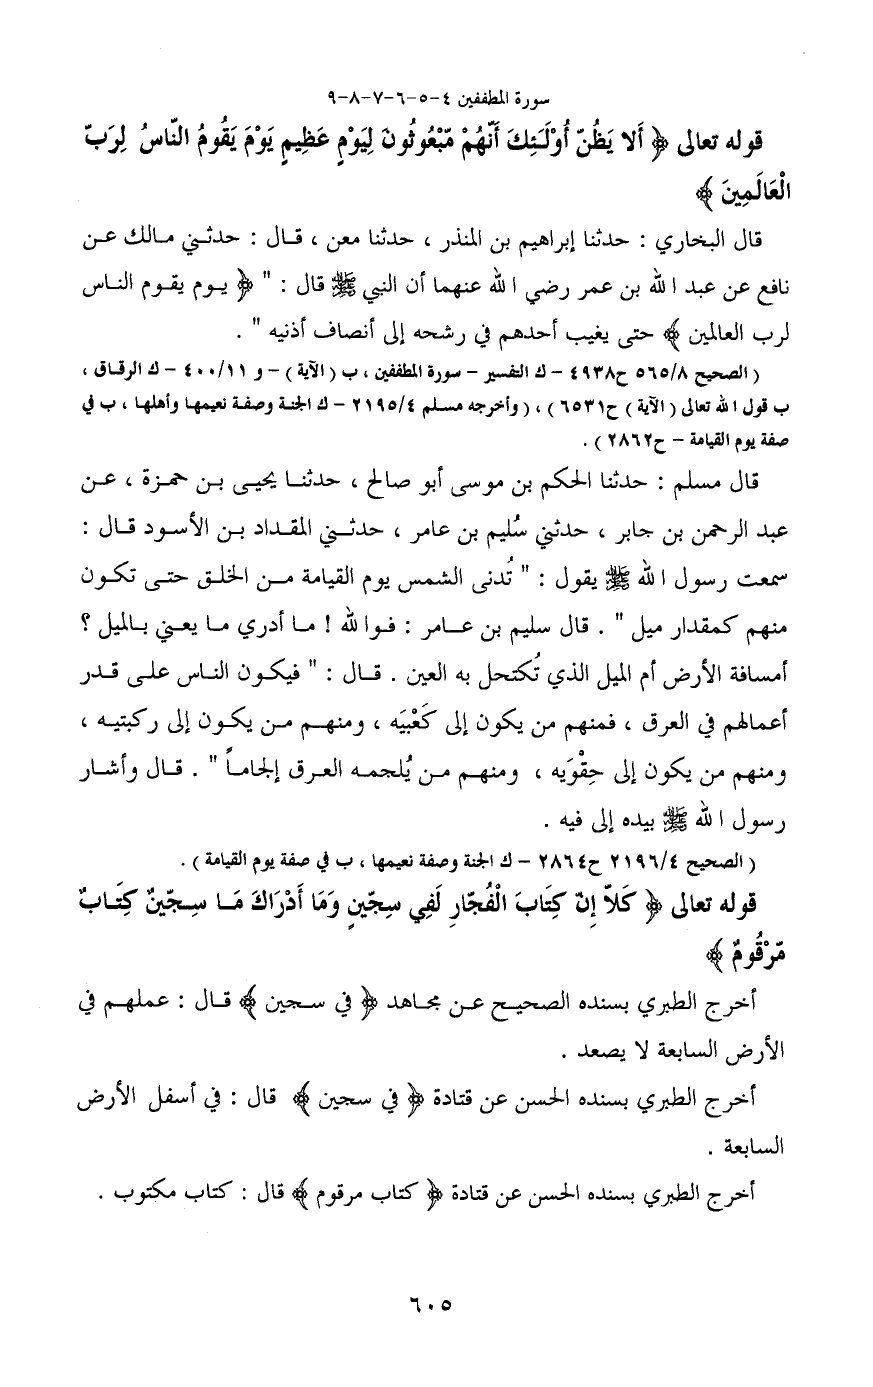 سورة المطففين ٤-٥-٦-٧-٨-٩
قوله تعالى ﴿ أَلا يَظُنّ أُوْلَـئِكَ أَنّهُمْ مّبْعُوثُونَ لِيَوْمٍ عَظِيمٍ يَوْمَ يَقُومُ النّاسُ لِرَبّ
الْعَالَمِينَ ﴾
قال البخاري : حدثنا إبراهيم بن المنذر ، حدثنا معن ، قـال : حدثـني مـالك عـن
نافع عن عبد الله بن عمر رضي الله عنهما أن النبي ﷺ قال : " ﴿ يـوم يقـوم النـاس
لرب العالمين ﴾ حتى يغيب أحدهم في رشحه إلى أنصاف أذنيه " .
( الصحيح ٥٦٥/٨ ح٤٩٣٨ - ك التفسير - سورة المطففين ، ب ( الآية ) - و ٤٠٠/١١ - ك الرقـاق ،
ب قول الله تعالى ( الآية ) ح٦٥٣١ ) ، ( وأخرجه مسلم ٢١٩٥/٤ - ك الجنـة وصفـة نعيمهـا وأهلهـا ، ب في
صفة يوم القيامة - ح٢٨٦٢ ) .
قال مسلم : حدثنا الحكم بن موسى أبو صالح ، حدثنـا يحيـى بـن حمـزة ، عـن
عبد الرحمن بن جابر ، حدثني سُليم بن عامر ، حدثـني المقـداد بـن الأسـود قـال :
سمعت رسول الله ﷺ يقول : " تُدنى الشمس يوم القيامة مـن الخلـق حتـى تكـون
منهم كمقدار ميل " . قال سليم بن عـامر : فـوالله ! مـا أدري مـا يعـني بـالميل ؟
أمسافة الأرض أم الميل الذي تُكتحل به العين . قـال : " فيكـون الناس علـى قـدر
أعمالهم في العرق ، فمنهم من يكون إلى كَعْبَيَه ، ومنهـم مـن يكـون إلى ركبتيـه ،
ومنهم من يكون إلى حِقْوَيه ، ومنهـم مـن يُلجمـه العـرق إلجامـاً " . قـال وأشـار
رسول الله ﷺ بيده إلى فيه .
( الصحيح ٢١٩٦/٤ ح٢٨٦٤ - ك الجنة وصفة نعيمها ، ب في صفة يوم القيامة ) .
قوله تعالى ﴿ كَلاّ إِنّ كِتَابَ الْفُجّارِ لَفِي سِجّينٍ وَمَا أَدْرَاكَ مَـا سِـجّينٌ كِتَـابٌ
مّرْقُومٌ ﴾
أخرج الطبري بسنده الصحيـح عـن مجـاهد ﴿ في سـجين ﴾ قـال : عملهـم في
الأرض السابعة لا يصعد .
أخرج الطبري بسنده الحسن عن قتادة ﴿ في سجين ﴾ قال : في أسفل الأرض
السابعة .
أخرج الطبري بسنده الحسن عن قتادة ﴿ كتاب مرقوم ﴾ قال : كتاب مكتوب .
٦٠٥